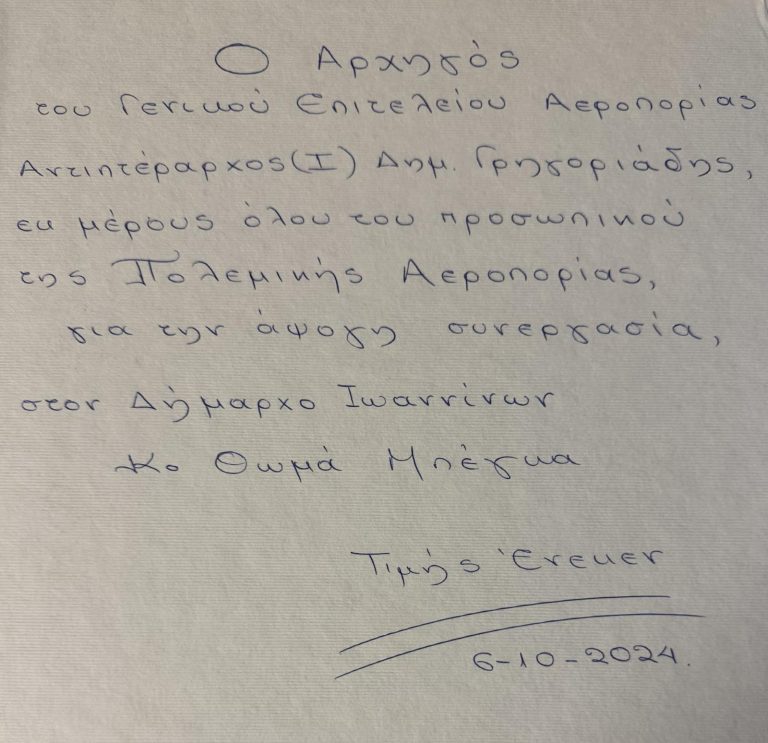 Ο Αρχηγός
του Γενικού Επιτελείου Αεροπορίας
Αντιπτέραρχος(Ι) Δημ. Γρηγοριάδης,
εκ μέρους όλου του προσωπικού
της Πολεμικής Αεροπορίας,
για την άψογη συνεργασία,
στον Δήμαρχο Ιωαννίνων
κο Θωμά Μπέγκα
Τιμής Ένεκεν
6-10-2024.